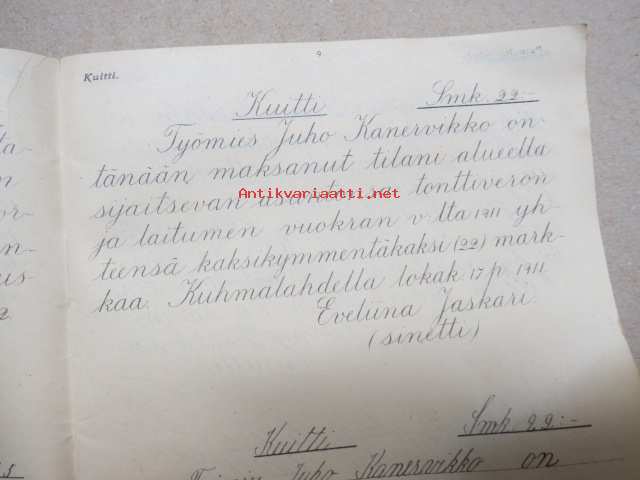 9
Kuitti.
Kuitti Smk. 22:-
Työmies Juho Kanervikko on
tänään maksanut tilani alueella
sijaitsevan asuntonsa tonttiveron
Antikvariaatti.net
ja laitumen vuokran v:lta 1911 yh-
teensä kaksikymmentäkaksi (22) mark-
kaa. Kuhmalahdella lokak. 17 p. 1911
Eveliina Jaskari
(sinetti)
Kuitti Smk. 22:-
Juho Kanervikko on
ta-
n
or-
n-
us-